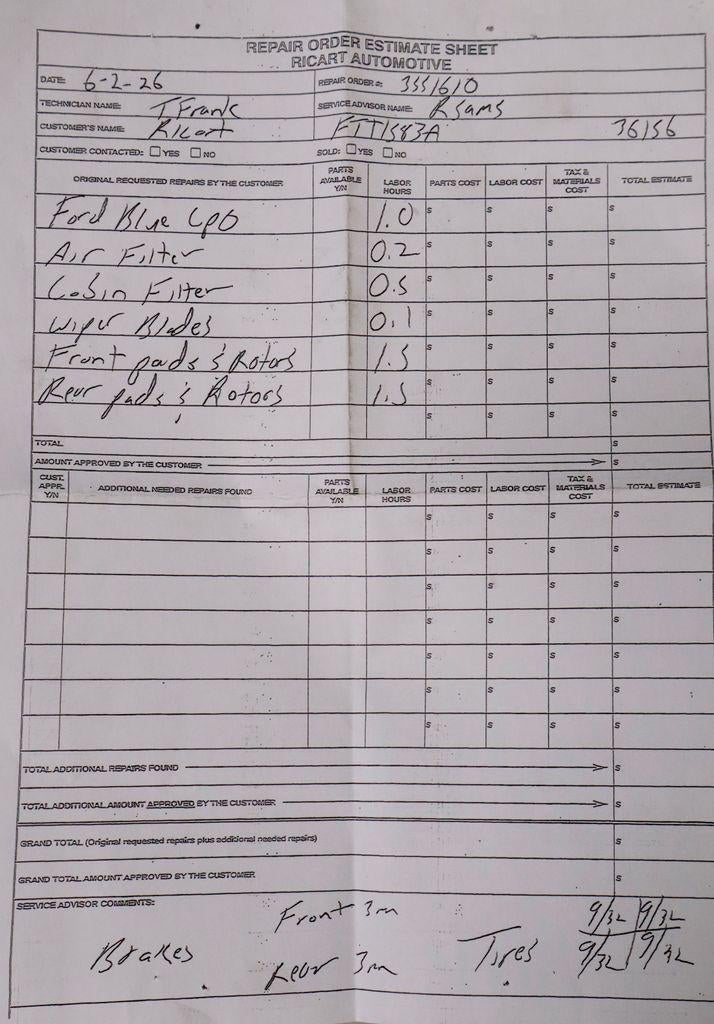 REPAIR ORDER ESTIMATE SHEET
RICART AUTOMOTIVE
DATE: 6-2-26 REPAIR ORDER #: 3551610
TECHNICIAN NAME: T Frank SERVICE ADVISOR NAME: RSams
CUSTOMER'S NAME: Ricart FTT1583A 36156
CUSTOMER CONTACTED: ☐ YES ☐ NO SOLD: ☐ YES ☐ NO
ORIGINAL REQUESTED REPAIRS BY THE CUSTOMER PARTS AVAILABLE Y/N LABOR HOURS PARTS COST LABOR COST TAX & MATERIALS COST TOTAL ESTIMATE
Ford Blue CPO 1.0 $ $ $ $
Air Filter 0.2 $ $ $ $
Cabin Filter 0.5 $ $ $ $
Wiper Blades 0.1 $ $ $ $
Front pads & Rotors 1.5 $ $ $ $
Rear pads & Rotors 1.5 $ $ $ $
$ $ $ $
TOTAL $
AMOUNT APPROVED BY THE CUSTOMER $
CUST. APPR. Y/N ADDITIONAL NEEDED REPAIRS FOUND PARTS AVAILABLE Y/N LABOR HOURS PARTS COST LABOR COST TAX & MATERIALS COST TOTAL ESTIMATE
$ $ $ $
$ $ $ $
$ $ $ $
$ $ $ $
$ $ $ $
$ $ $ $
$ $ $ $
TOTAL ADDITIONAL REPAIRS FOUND $
TOTAL ADDITIONAL AMOUNT APPROVED BY THE CUSTOMER $
GRAND TOTAL (Original requested repairs plus additional needed repairs) $
GRAND TOTAL AMOUNT APPROVED BY THE CUSTOMER $
SERVICE ADVISOR COMMENTS:
Front 3m 9/32 9/32
Brakes Tires
Rear 3m 9/32 9/32